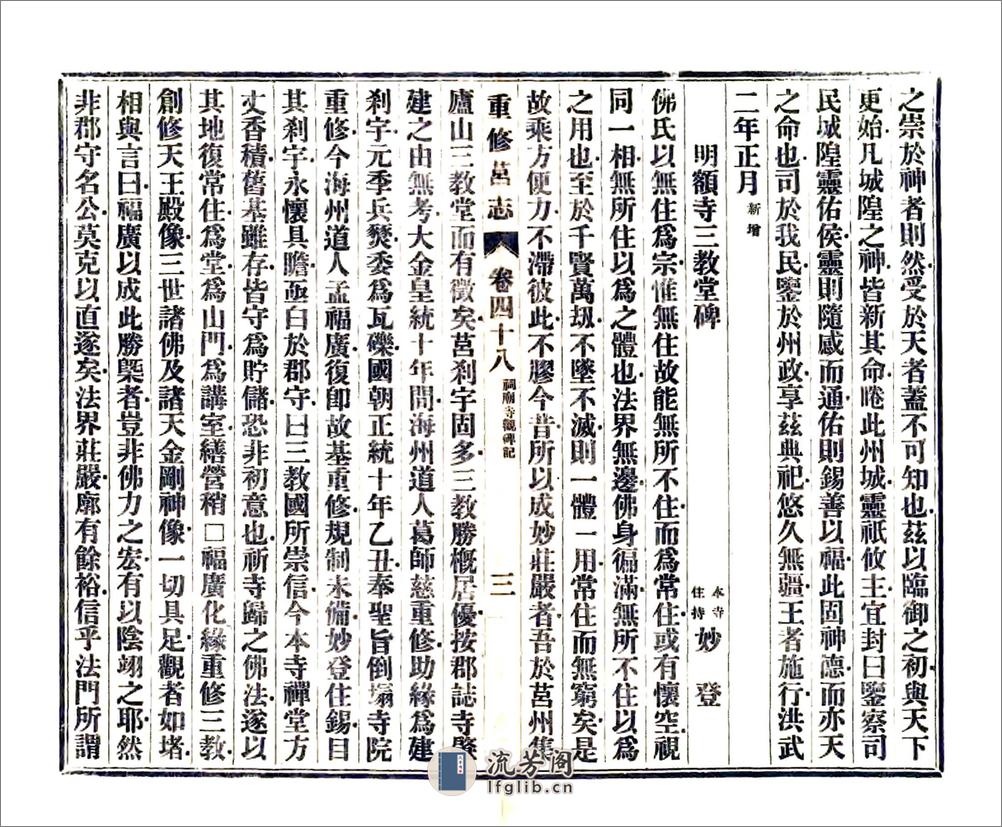 之崇於神者則然受於天者蓋不可知也茲以臨御之初與天下
更始凡城隍之神皆新其命睠此州城靈祇攸主宜封曰鑒察司
民城隍靈佑侯靈則隨感而通佑則錫善以福此固神德而亦天
之命也司於我民鑒於州政享茲典祀悠久無疆王者施行洪武
二年正月新增
明額寺三教堂碑 本寺住持妙登
佛氏以無住爲宗惟無住故能無所不住而爲常住或有懷空視
同一相無所住以爲之體也法界無邊佛身徧滿無所不住以爲
之用也至於千賢萬刼不墜不滅則一體一用常住而無窮矣是
故乘方便力不滯彼此不膠今昔所以成妙莊嚴者吾於莒州集
廬山三教堂而有徵矣莒刹宇固多三教勝概居優按郡誌寺肇
重修莒志 卷四十八 祠廟寺觀碑記 三
建之由無考大金皇統十年間海州道人葛師慈重修助緣爲建
刹宇元季兵燹委爲瓦礫國朝正統十年乙丑奉聖旨倒塌寺院
重修今海州道人孟福廣復卽故基重修規制未備妙登住錫目
其刹宇永懷具瞻亟白於郡守曰三教國所崇信今本寺禪堂方
丈香積舊基雖存皆守爲貯儲恐非初意也祈寺歸之佛法遂以
其地復常住爲堂爲山門爲講室繕營稍□福廣化緣重修三教
創修天王殿像三世諸佛及諸天金剛神像一切具足觀者如堵
相與言曰福廣以成此勝槩者豈非佛力之宏有以陰翊之耶然
非郡守名公莫克以直遂矣法界莊嚴廓有餘裕信乎法門所謂
流芳阁
lfglib.cn